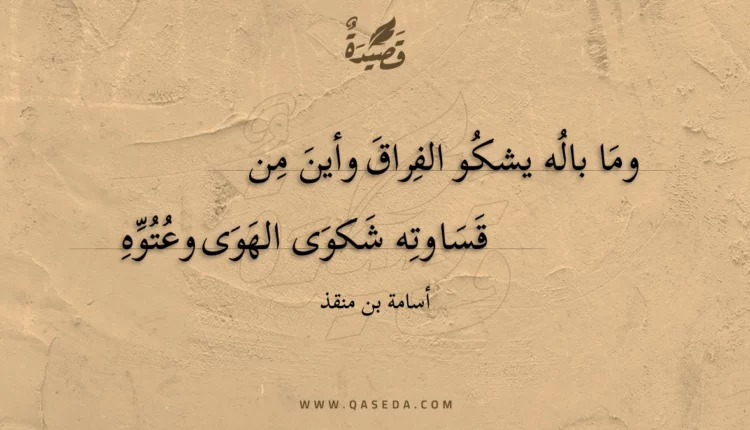 قَصِيْدَةٌ
ومَا بالُه يشكُو الفِراقَ وأينَ مِن
قَسَاوتِه شَكوَى الهَوَى وعُتُوِّهِ
أسامة بن منقذ
WWW.QASEDA.COM